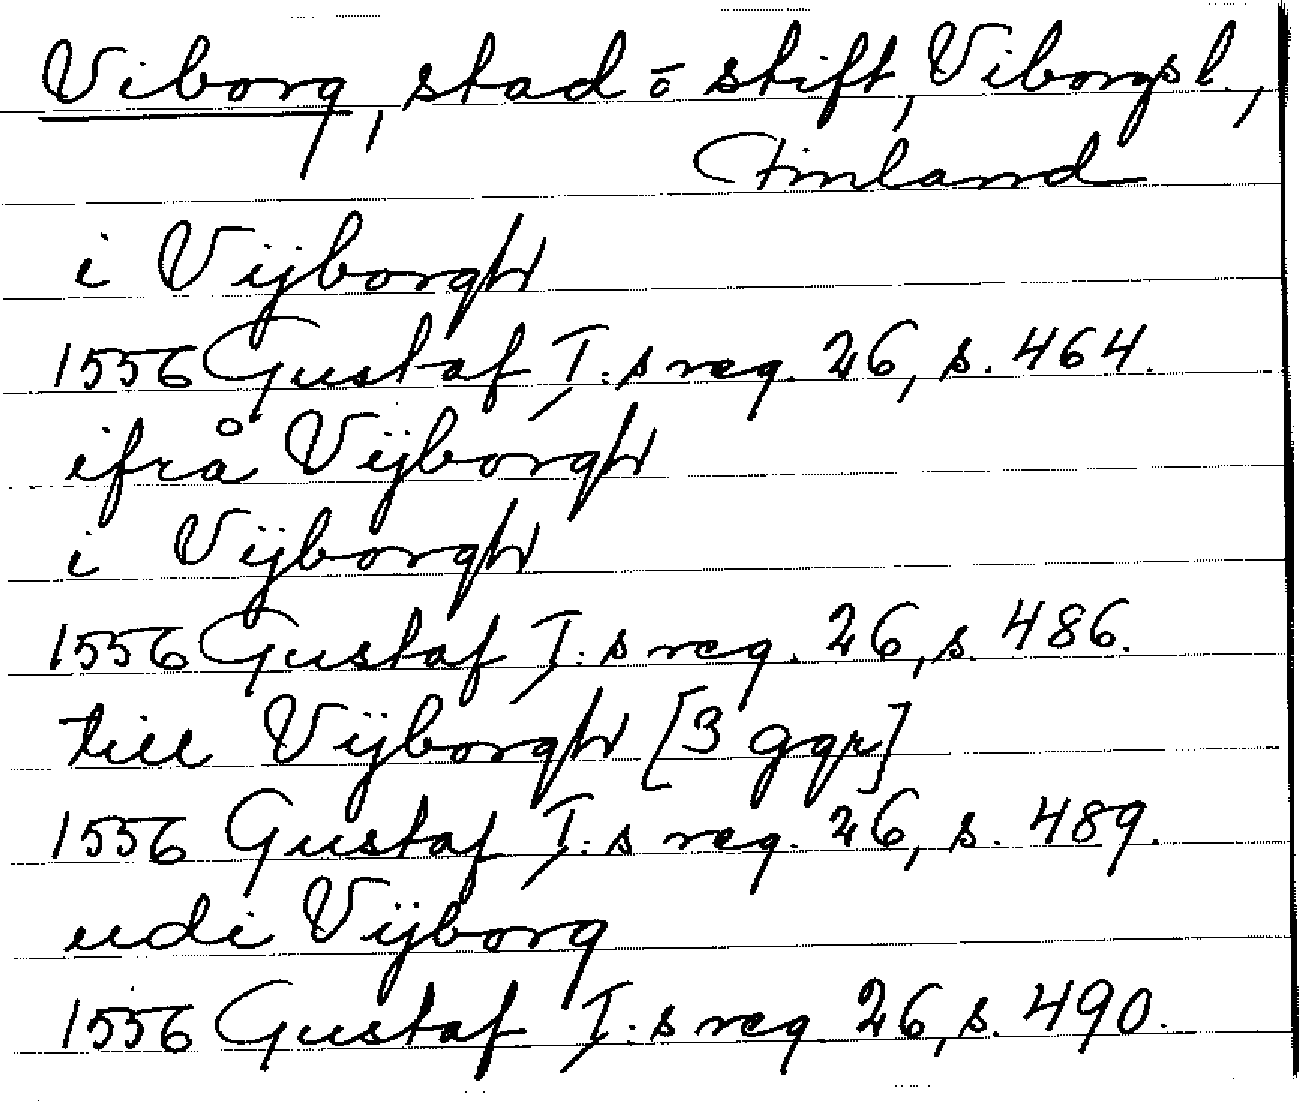 Viborg, stad o stift, Viborgs l.,
Finland
i Vijborgh
1556 Gustaf I:s reg. 26, s. 464.
ifrå Vijborgh
i Vijborgh
1556 Gustaf I:s reg. 26, s. 486.
till Vijborgh [3 ggr]
1556 Gustaf I:s reg. 26, s. 489.
udi Vijborg
1556 Gustaf I:s reg 26, s. 490.